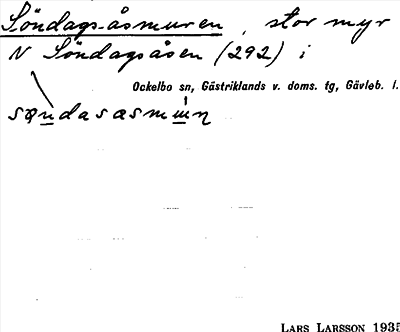 Söndags-åsmuren, stor myr
N Söndagsåsen (292) i
Ockelbo sn, Gästriklands v. doms. tg, Gävleb. l.
LARS LARSSON 1935